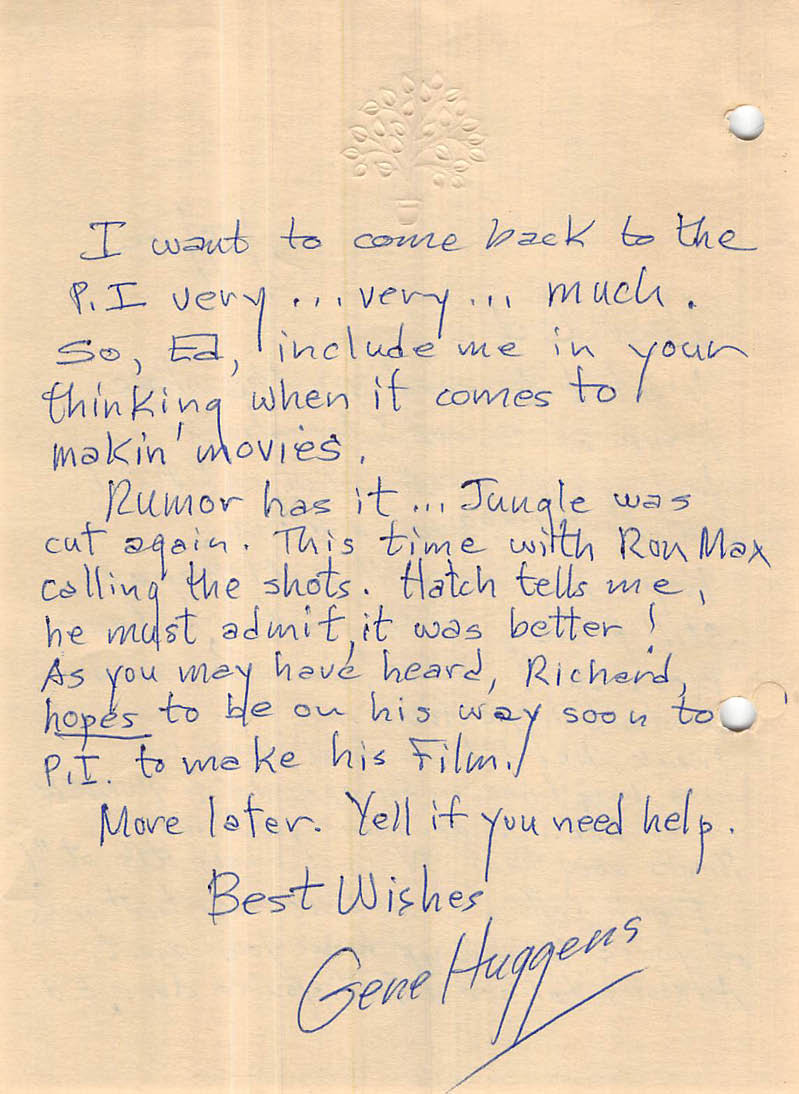 I want to come back to the
P.I very ... very ... much.
So, Ed, include me in your
thinking when it comes to
makin' movies.
Rumor has it ... Jungle was
cut again. This time with Ron Max
calling the shots. Hatch tells me,
he must admit, it was better!
As you may have heard, Richard,
hopes to be on his way soon to
P.I. to make his Film.
More later. Yell if you need help.
Best Wishes
Gene Huggens